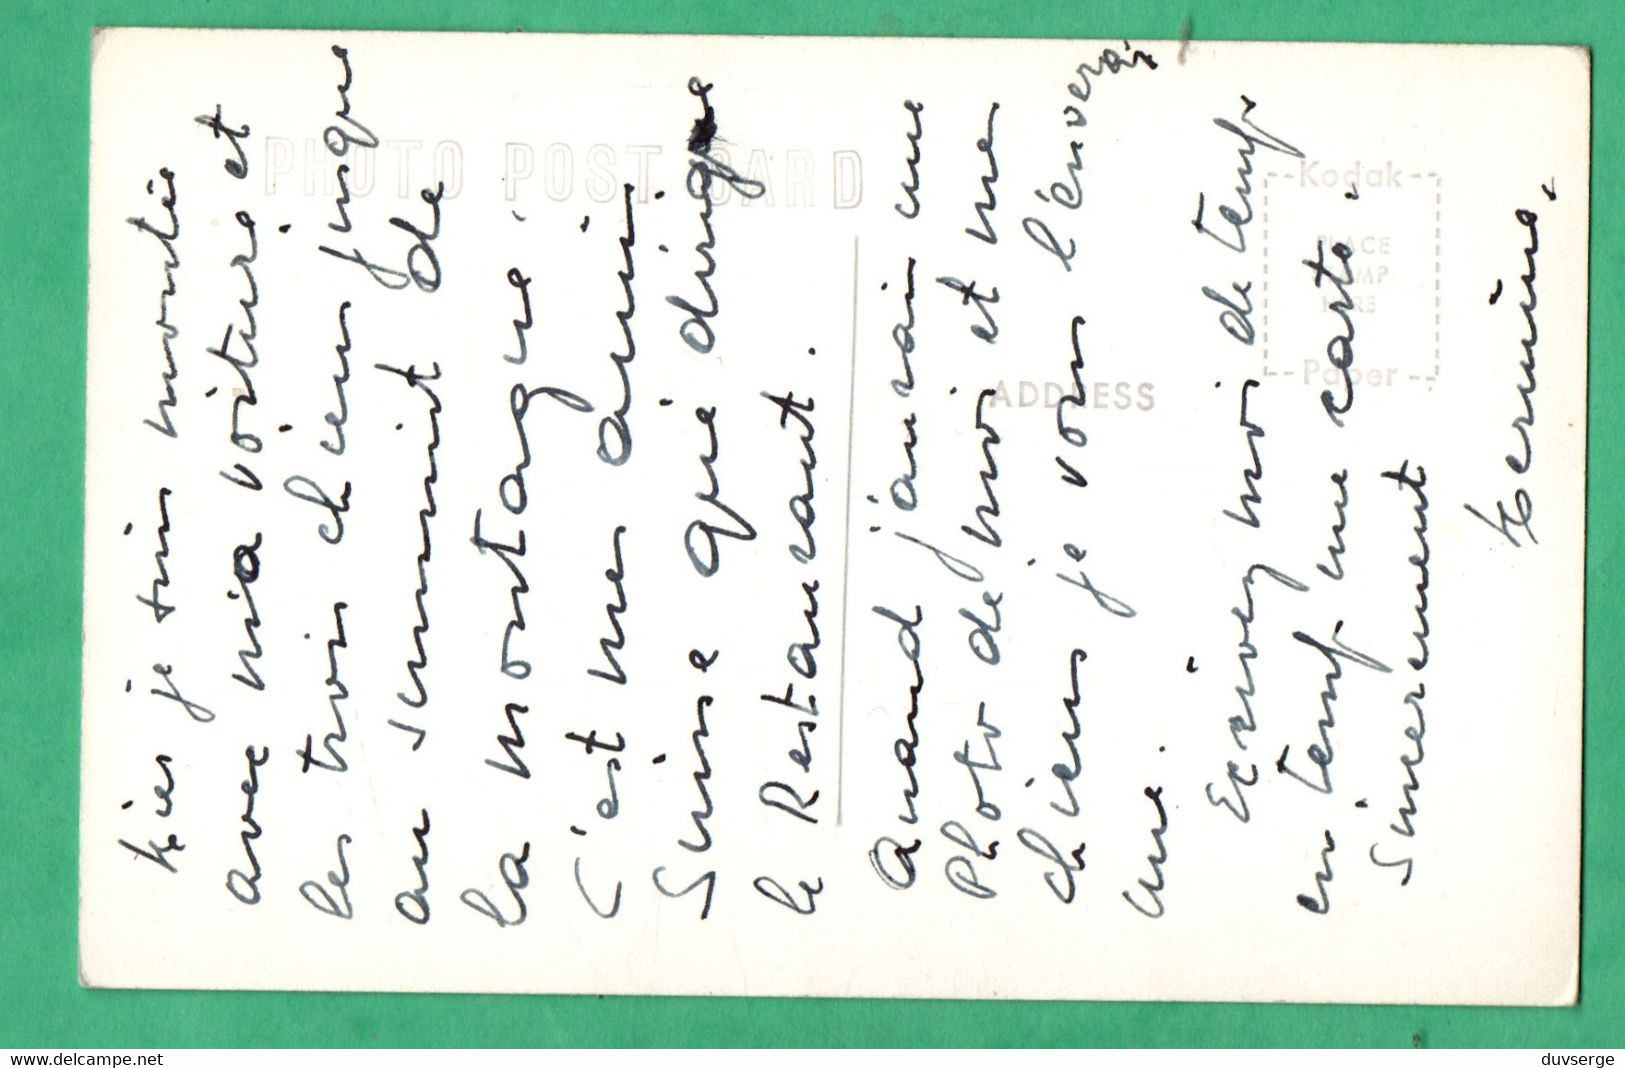 Hier je suis montée
avec ma voiture et
les trois chiens jusque
au summit de
la montagne,
C'est mes amis
Suise qui dirique
le Restaurant.
Quand j'aurai une
Photo de moi et mes
chiens je vous l'enverai
une.
Ecrivez moi de temps
en temps une carte,
Sincerement
Hermine,
PHOTO POST CARD
ADDRESS
Kodak
PLACE
STAMP
HERE
Paper
www.delcampe.net
duvserge